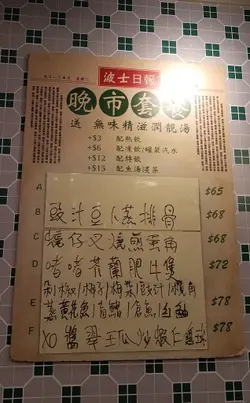 波士日報
晚市套餐
送 無味精滋潤靚湯
+$3 配熱飲
+$6 配凍飲/罐裝汽水
+$12 配特飲
+$15 配魚湯浸菜
A $65
豉汁豆 蒸排骨
B $68
C 叉燒煎蛋角 $68
D 啫啫芥蘭肥牛煲 $72
E 剁椒/梅子/梅菜/豉汁/欖角 $78
蒸黃花魚/ /倉魚/
F XO醬翠玉瓜炒蝦仁 $78